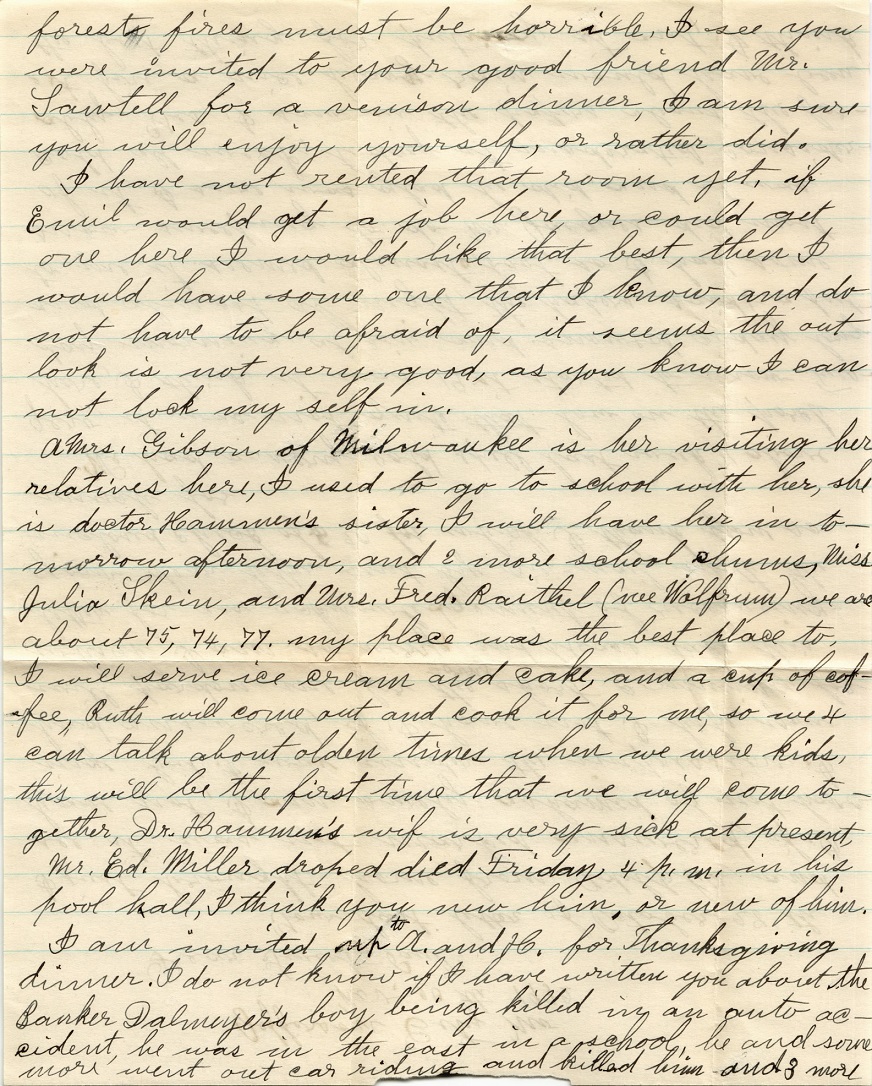 forests fires must be horrible, I see you
were invited to your good friend Mr.
Sawtell for a venison dinner, I am sure
you will enjoy yourself, or rather did.
I have not rented that room yet, if
Emil would get a job here or could get
one here I would like that best, then I
would have some one that I know, and do
not have to be afraid of, it seems the out
look is not very good, as you know I can
not lock my self in.
A Mrs. Gibson of Milwaukee is her visiting her
relatives here, I used to go to school with her, she
is doctor Hammen's sister, I will have her in to-
morrow afternoon, and 2 more school chums, Miss
Julia Skein, and Mrs. Fred. Raithel (nee Wolfrum) we are
about 75, 74, 77. my place was the best place to,
I will serve ice cream and cake, and a cup of cof-
fee, Ruth will come out and cook it for me, so we 4
can talk about olden times when we were kids,
this will be the first time that we will come to-
gether, Dr. Hammen's wif is very sick at present,
Mr. Ed. Miller droped died Friday 4 p. m. in his
pool hall, I think you new him, or new of him.
I am invited up to A. and H. for Thanksgiving
dinner. I do not know if I have written you about the
Banker Dalmeyer's boy being killed in an auto ac-
cident, he was in the east in a school, he and some
more went out car riding and killed him and 3 more